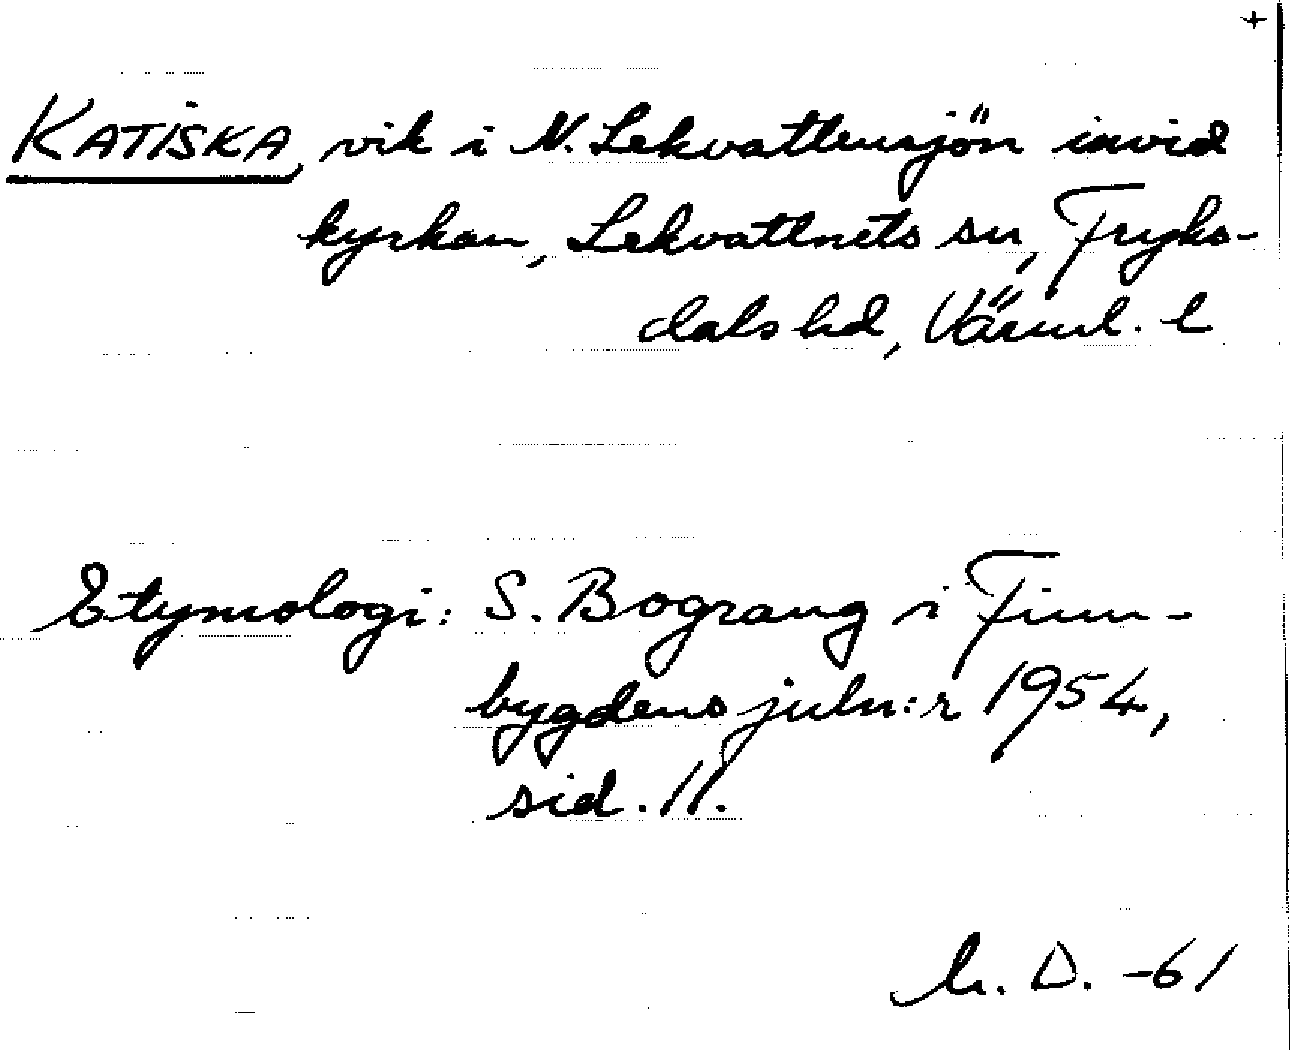 +
KATISKA, vik i N. Lekvattensjön invid
kyrkan, Lekvattnets sn, Fryks-
dals hd, Värml. l
Etymologi: S. Bograng i Finn-
bygdens juln:r 1954,
sid. 11.
D. -61